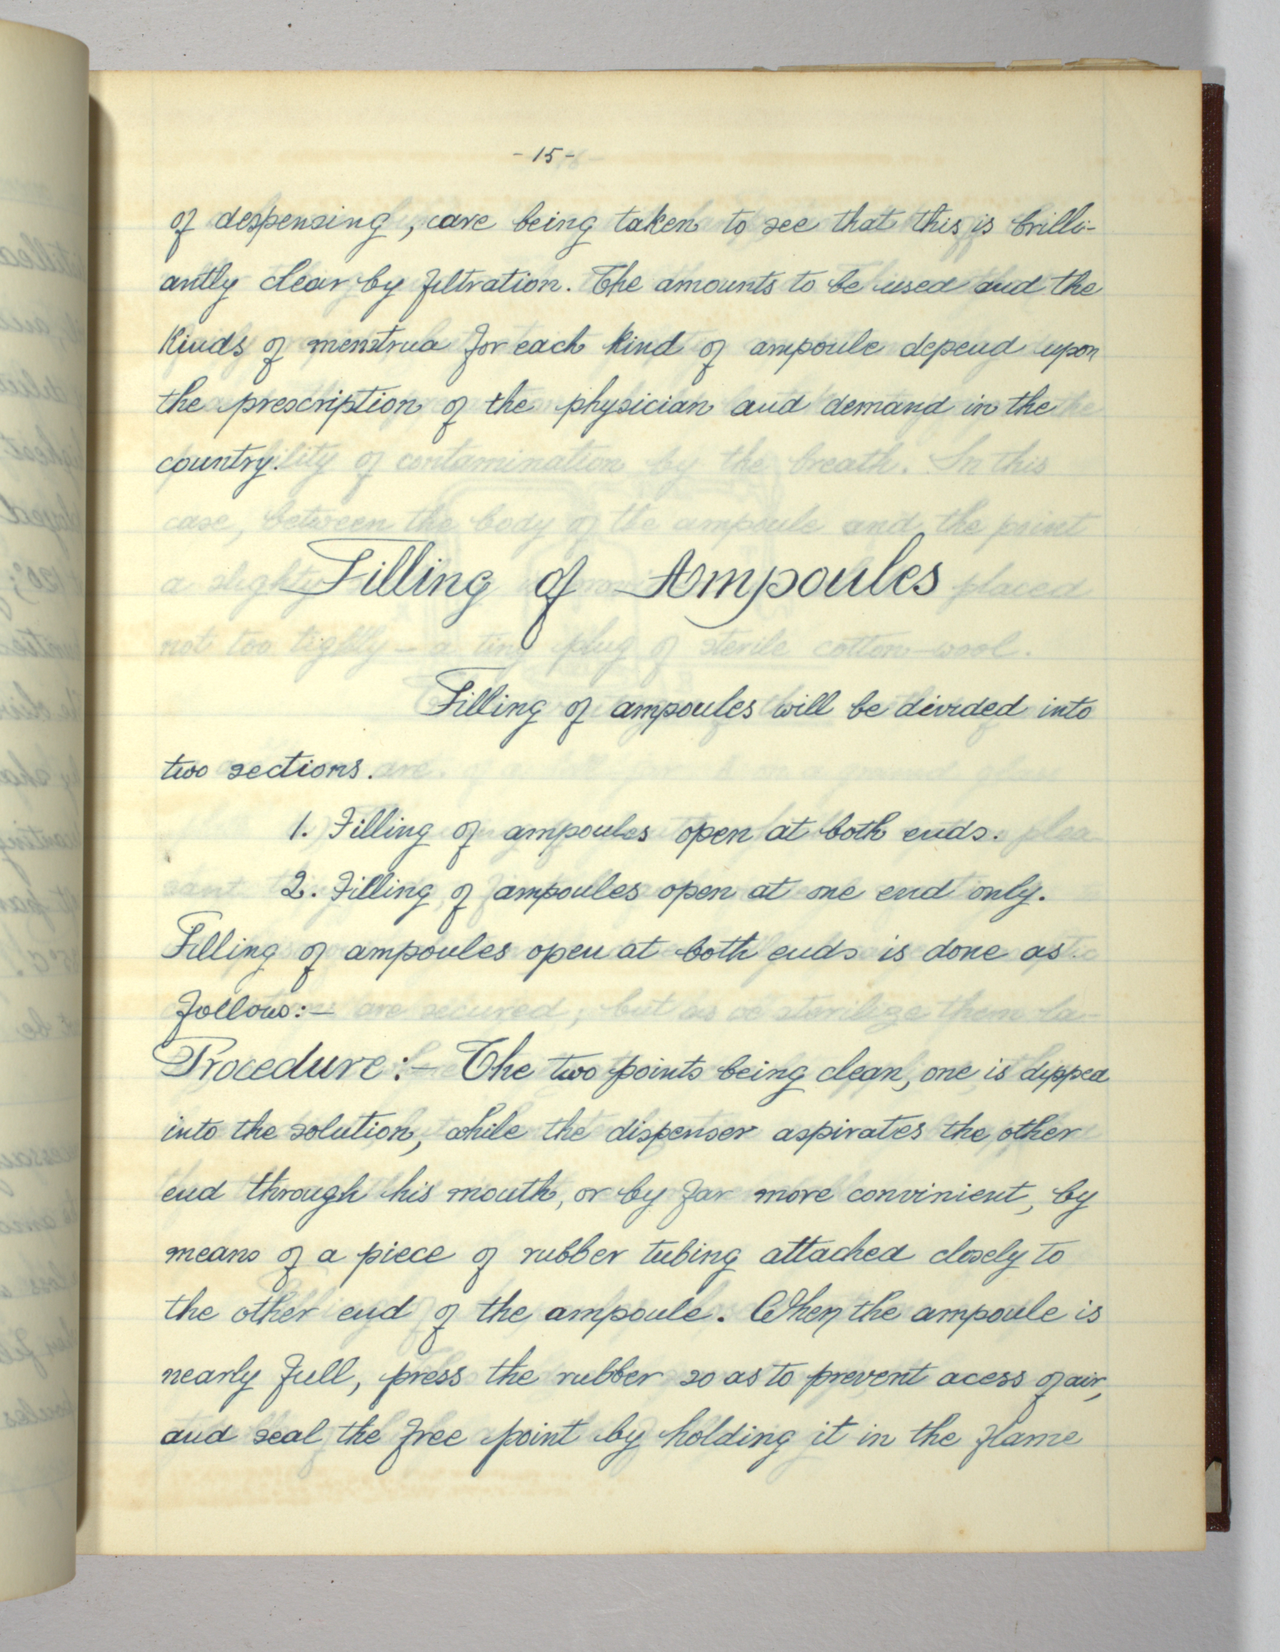 - 15 -
of despensing, care being taken to see that this is brilli-
antly clear by filtration. The amounts to be used and the
kinds of menstrua for each kind of ampoule depend upon
the prescription of the physician and demand in the
country.
Filling of Ampoules
Filling of ampoules will be divided into
two sections.
1. Filling of ampoules open at both ends.
2. Filling of ampoules open at one end only.
Filling of ampoules open at both ends is done as
follows:-
Procedure:- The two points being clean, one is dipped
into the solution, while the dispenser aspirates the other
end through his mouth, or by far more convinient, by
means of a piece of rubber tubing attached closely to
the other end of the ampoule. When the ampoule is
nearly full, press the rubber so as to prevent acess of air,
and seal the free point by holding it in the flame